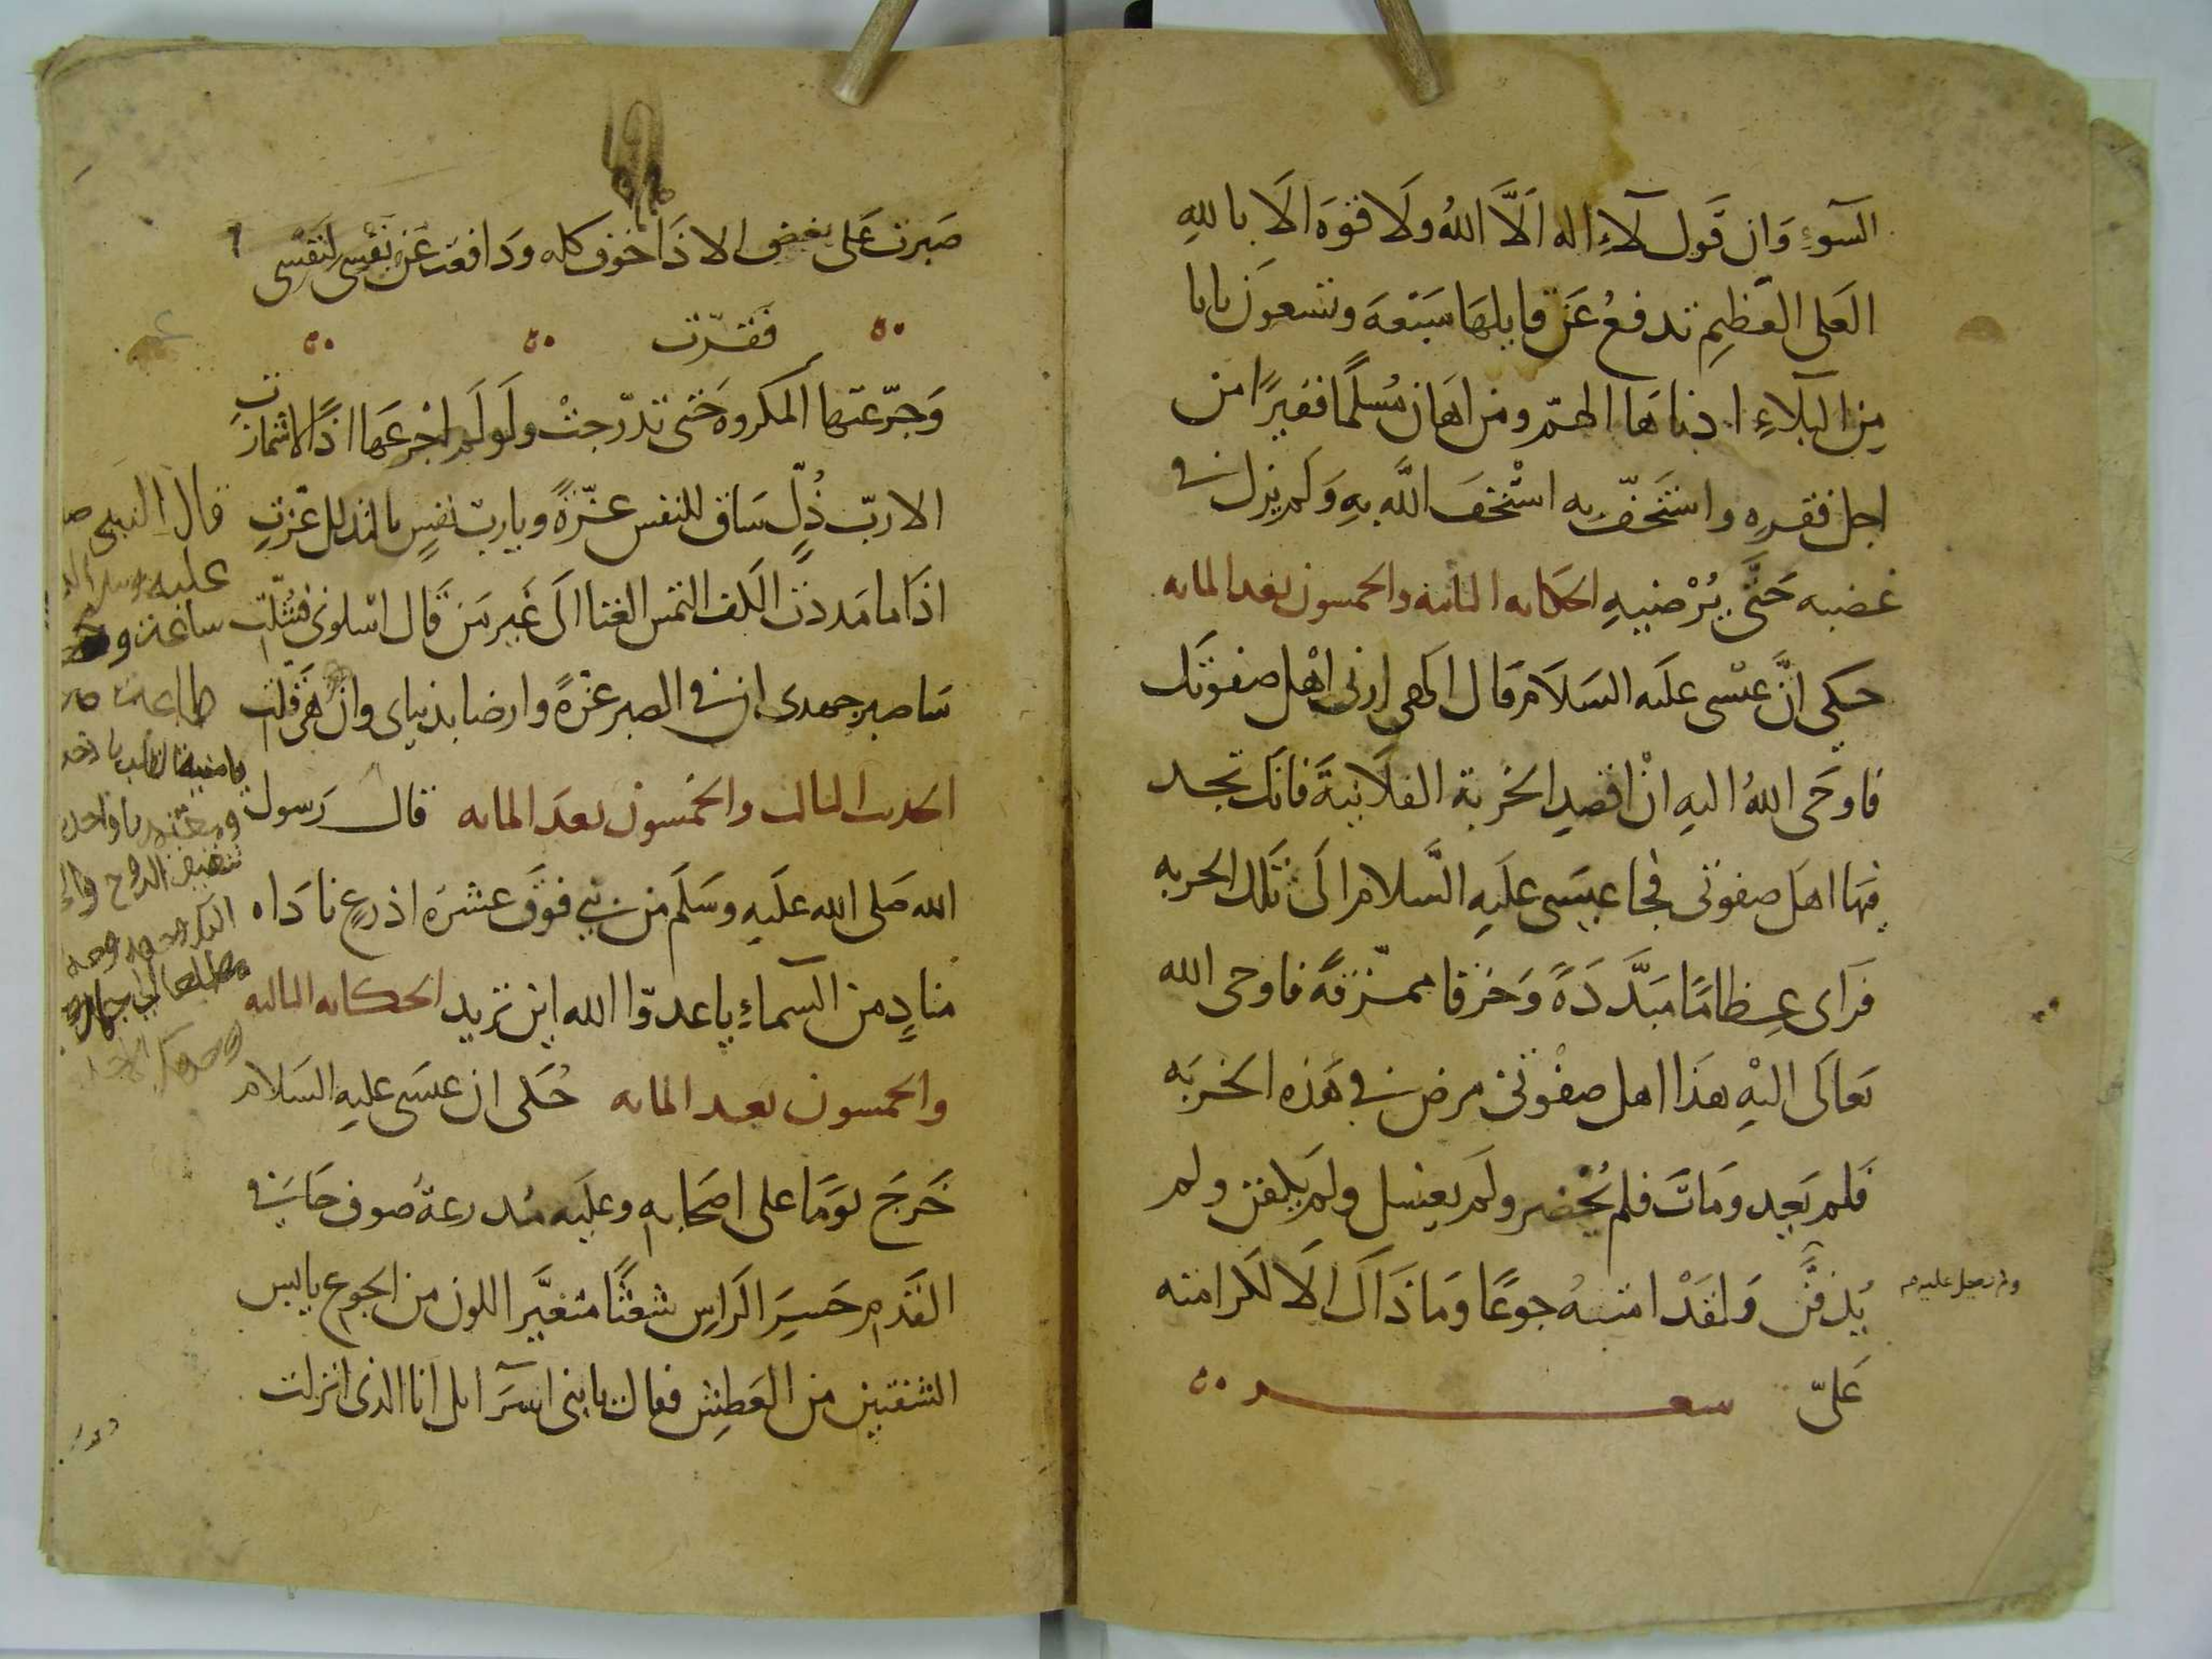 السوءِ وَان قَول لآءِ اله اَلاَّ اللهُ ولَا قوَه الَا بالله
العَلى العَظِيمِ تدفعُ عَن قايلهَا سَبْعَهَ وتسْعوَن بابا
مِن البَلاءِ ادناهَا الهمّ ومن اهَان مُسلمًا فقيرًا من
اجل فقرهِ واستَخفّ به استْخفَ اللَّه بهِ وَلَم يزل في
غضبه حَتَّى يُرْضيهِ الحكايه الثانية والخمسون بعد المايه
حكي انَّ عيسْى عليَه السَلاَم قَال الَهي ارنى اهْل صفوتَك
فاوحَى اللهُ اليهِ انْ اقصِدِ الخربة الفلاَنيةَ فانَك تجد
فيَها اهَل صفوتى فجا عيسَى علَيهِ السَّلام الَى تَلك الخربه
فَراى عِظامًا مَبدَّدَةً وَخرَقا ممزّقةً فاوحى الله
تعالَى اليْهِ هَذا اهل صفْوتى مرض في هَذه الخربَه
فَلم يَعِد ومَاتَ فلم يُحْضر ولَم يغسل ولَم يَكفن ولم
يُدفَن وَلقَدْ امتهُ جوعًا وَمَا ذَاكَ الَا لكرامته
ولم يصل عليه
عَلىّ سعر
صَبرت عَلى بعْض الاذَا خوْف كله وَدافعت عَن نَفْسى لنَفْسى
فَقرّت
وَجرّعتها المكروه حَتى تدّرجتْ ولَو لَم اجْرعَهَا اذًا لاشمازت
الا ربّ ذُلٍّ سَاق للنفس عزّةً ويا ربّ نفسٍ بالتذلل عَزتِ
اذَا ما مَددْت الكَف التمس الغنا الَى غَير مَن قَال اسْلونى فشُلّت
سَاصبر جهدى ان في الصبر عزّةً وارضا بدنياى وان هَى قَلّت
الحديث الثالث والخمسون بعَد المايه قالَ رَسول
الله صَلى الله علَيهِ وسَلَم من بنى فوَق عشرَه اذرعٍ نادَاه
منادٍ من السماءِ ياعدوّا الله اين تريد الحكايه الثالثه
والخمسون بعد المايه حُكى ان عيسَى عليهِ السَلام
خَرجَ يوَمًا على اصحَابهِ وعليَه مُدرعةُ صُوف حَافى
القَدم حَسِرَ الَراسِ شعثًا متغيَّر اللون من الجوع يابس
الشفتين من العَطِش فقال يا بنى اسرَايل انا الذى انزلت
قال النبى ص
عليه وسلم
ساعة و
طاعة